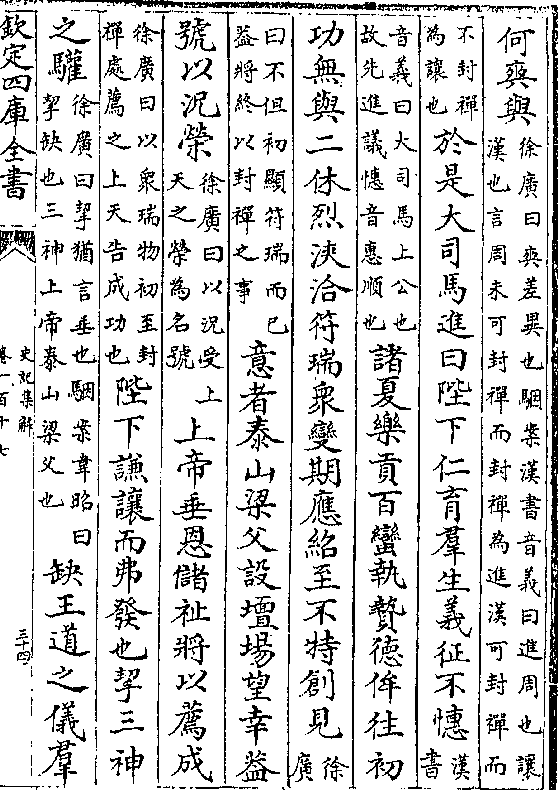 何爽與徐廣曰爽差異也駰案漢書音義曰進周也讓
漢也言周未可封禪而封禪為進漢可封禪而
不封禪
為讓也於是大司馬進曰陛下仁育羣生義征不憓漢書
音義曰大司馬上公也
故先進議憓音惠順也諸夏樂貢百蠻執贄德侔往初
功無與二休烈浹洽符瑞衆變期應紹至不特創見徐廣
曰不但初顯符瑞而已
葢將終以封禪之事意者泰山梁父設壇場望幸葢
號以況榮徐廣曰以況受上
天之榮為名號上帝垂恩儲祉將以薦成
徐廣曰以衆瑞物初至封
禪處薦之上天告成功也陛下謙讓而弗發也挈三神
之驩徐廣曰挈猶言垂也駰案韋昭曰
挈缺也三神上帝泰山梁父也缺王道之儀羣
欽定四庫全書
史記集解
卷一百十七
三十四